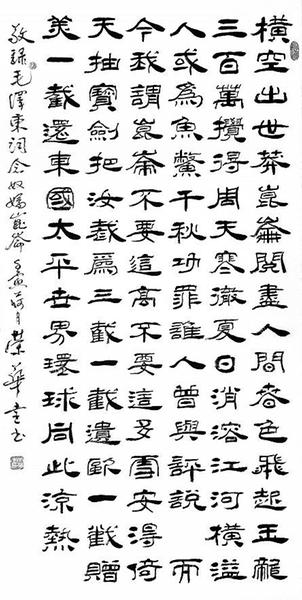 橫空出世莽崑崙閱盡人間春色飛起玉龍
三百萬攪得周天寒澈夏日消溶江河橫溢
人或為魚鱉千秋功罪誰人曾與評說而
今我謂崑崙不要這高不要這多雪安得倚
天抽寶劍把汝裁爲三截一截遺歐一截贈
美一截還東國太平世界環球同此涼熱
敬録毛澤東詞念奴嬌崑崙 榮華書